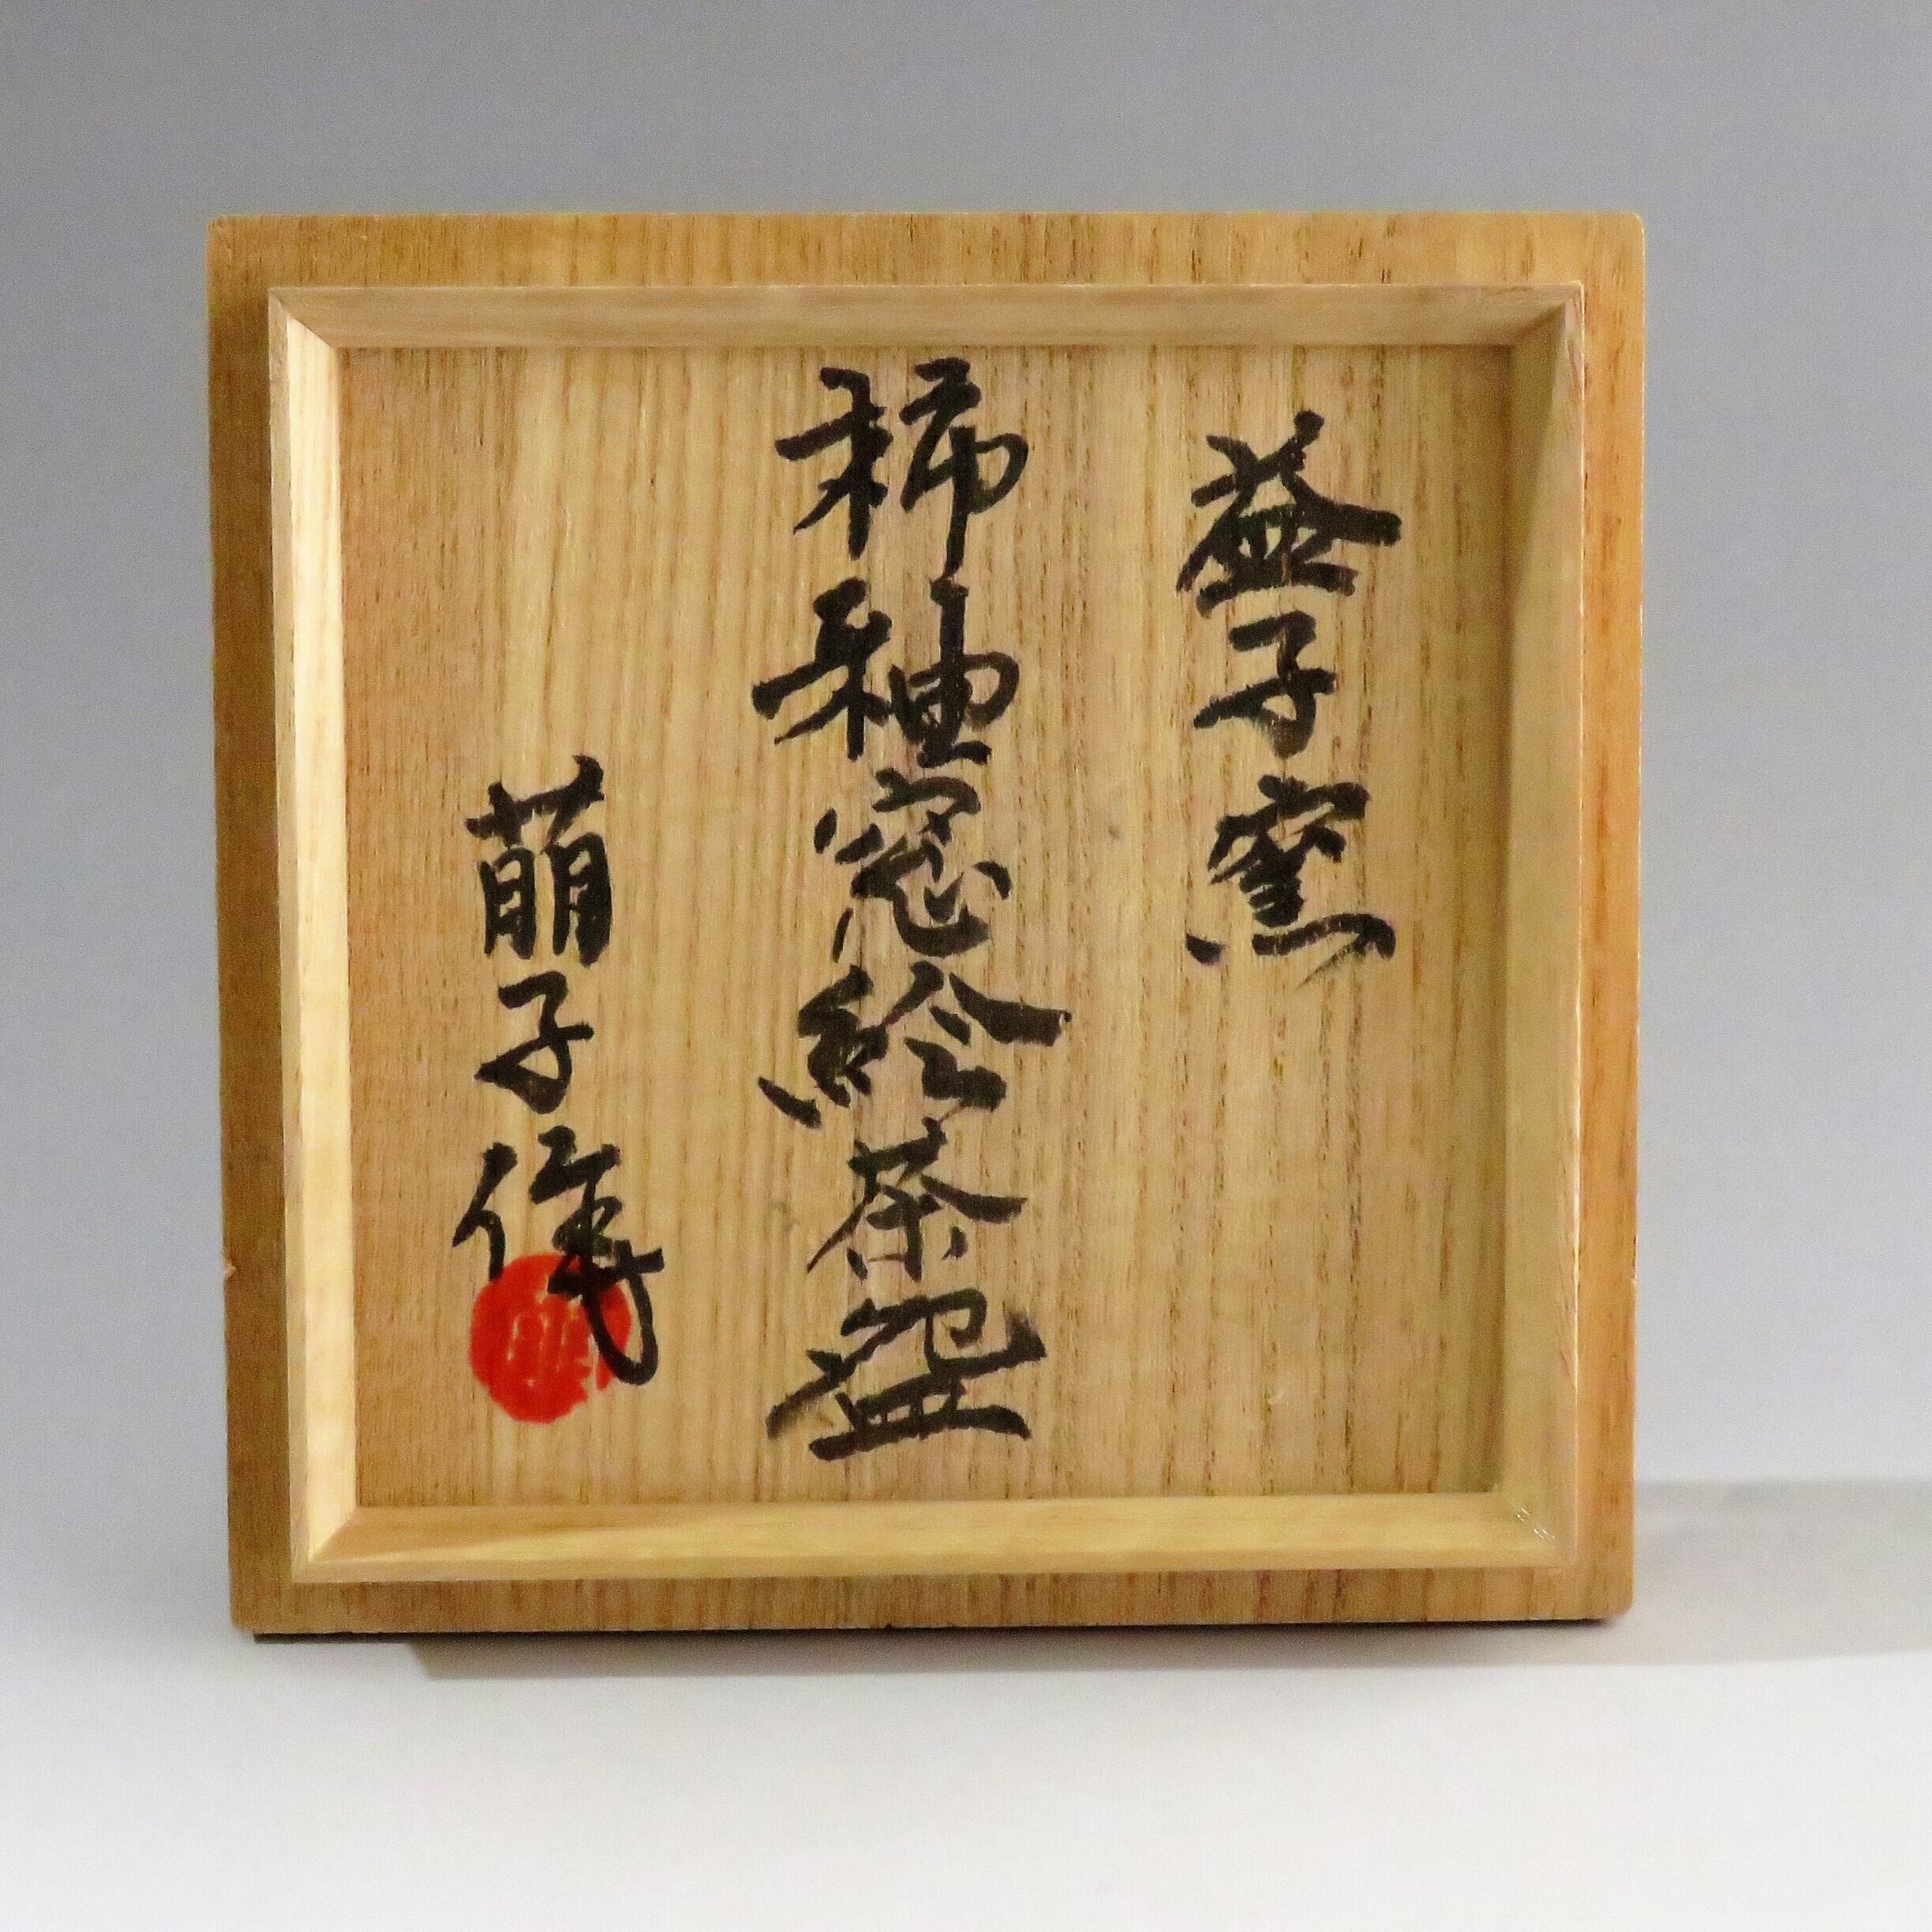 益子窯
柿釉窓絵茶盌
萠子